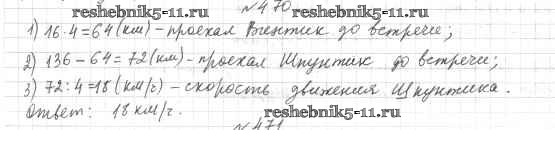 reshebnik5-11.ru №470 reshebnik5-11.ru
1) 16·4=64(км)-проехал Винтик до встречи;
2) 136-64=72(км)-проехал Шпунтик до встречи;
3) 72:4=18(км/ч)-скорость движения Шпунтика.
reshebnik5-11.ru
Ответ: 18 км/ч.
№471